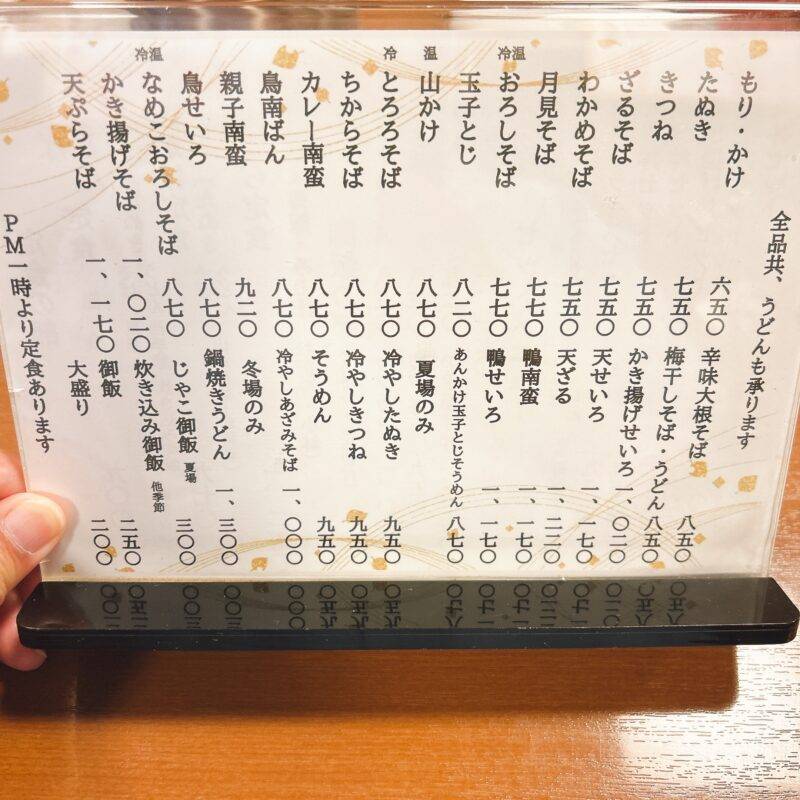 全品共、うどんも承ります
もり・かけ 六五〇
たぬき 七五〇
きつね 七五〇
ざるそば 七五〇
わかめそば 七五〇
月見そば 七七〇
冷温 おろしそば 七七〇
玉子とじ 八二〇
温 山かけ 八七〇
冷 とろろそば 八七〇
ちからそば 八七〇
カレー南蛮 八七〇
鳥南ばん 八七〇
親子南蛮 九二〇
鳥せいろ 八七〇
冷温 なめこおろしそば 八七〇
かき揚げそば 一、〇二〇
天ぷらそば 一、一七〇
辛味大根そば 八五〇
梅干しそば・うどん 八五〇
かき揚げせいろ 一、〇二〇
天せいろ 一、一七〇
天ざる 一、二二〇
鴨南蛮 一、一七〇
鴨せいろ 一、一七〇
あんかけ玉子とじそうめん 八七〇
夏場のみ
冷やしたぬき 九五〇
冷やしきつね 九五〇
そうめん 九五〇
冷やしあざみそば 一、〇〇〇
冬場のみ
鍋焼きうどん 一、三〇〇
じゃこ御飯 夏場 三〇〇
炊き込み御飯 他季節 二五〇
御飯 二〇〇
大盛り
PM一時より定食あります